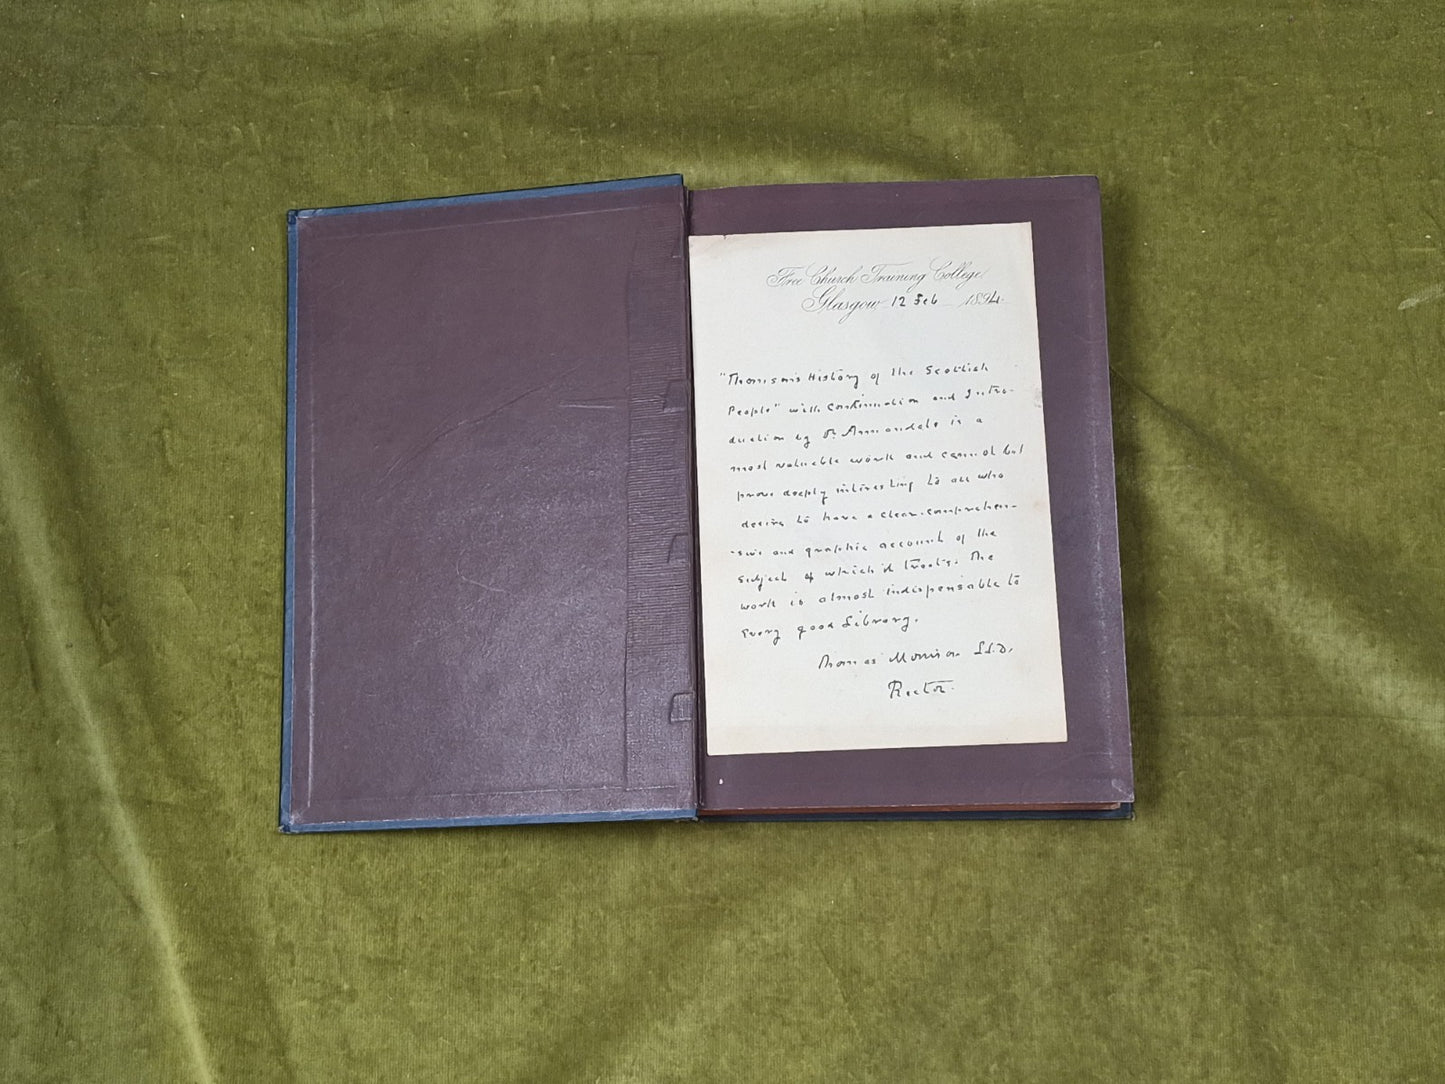 Free Church Training College,
Glasgow, 12 Feb 1894.
"Thomson's History of the Scottish
People" with Continuation and Intro-
duction by Dr. Annandale is a
most valuable work and cannot but
prove deeply interesting to all who
desire to have a clear, comprehen-
-sive and graphic account of the
subject of which it treats. The
work is almost indispensable to
every good Library.
Thomas Morrison LL.D.
Rector.